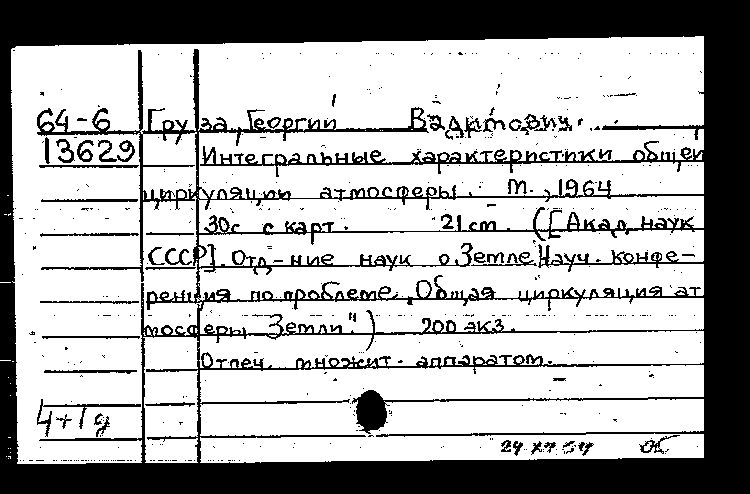 64-6 Груза, Георгий Вадимович.
13629 Интегральные характеристики общей
циркуляции атмосферы. М., 1964
30с с карт. 21 см. ([Акад. наук
СССР]. Отд-ние наук о Земле. Науч. конфе-
ренция по проблеме „Общая циркуляция ат
мосферы Земли".) 200 экз.
Отпеч. множит. аппаратом.
4+1 д